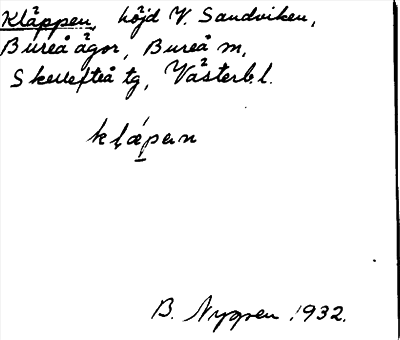 Kläppen, höjd V. Sandviken,
Bureå ägor, Bureå m,
Skellefteå tg, Västerb. l.
kl̥ǽpen
B. Nygren 1932.